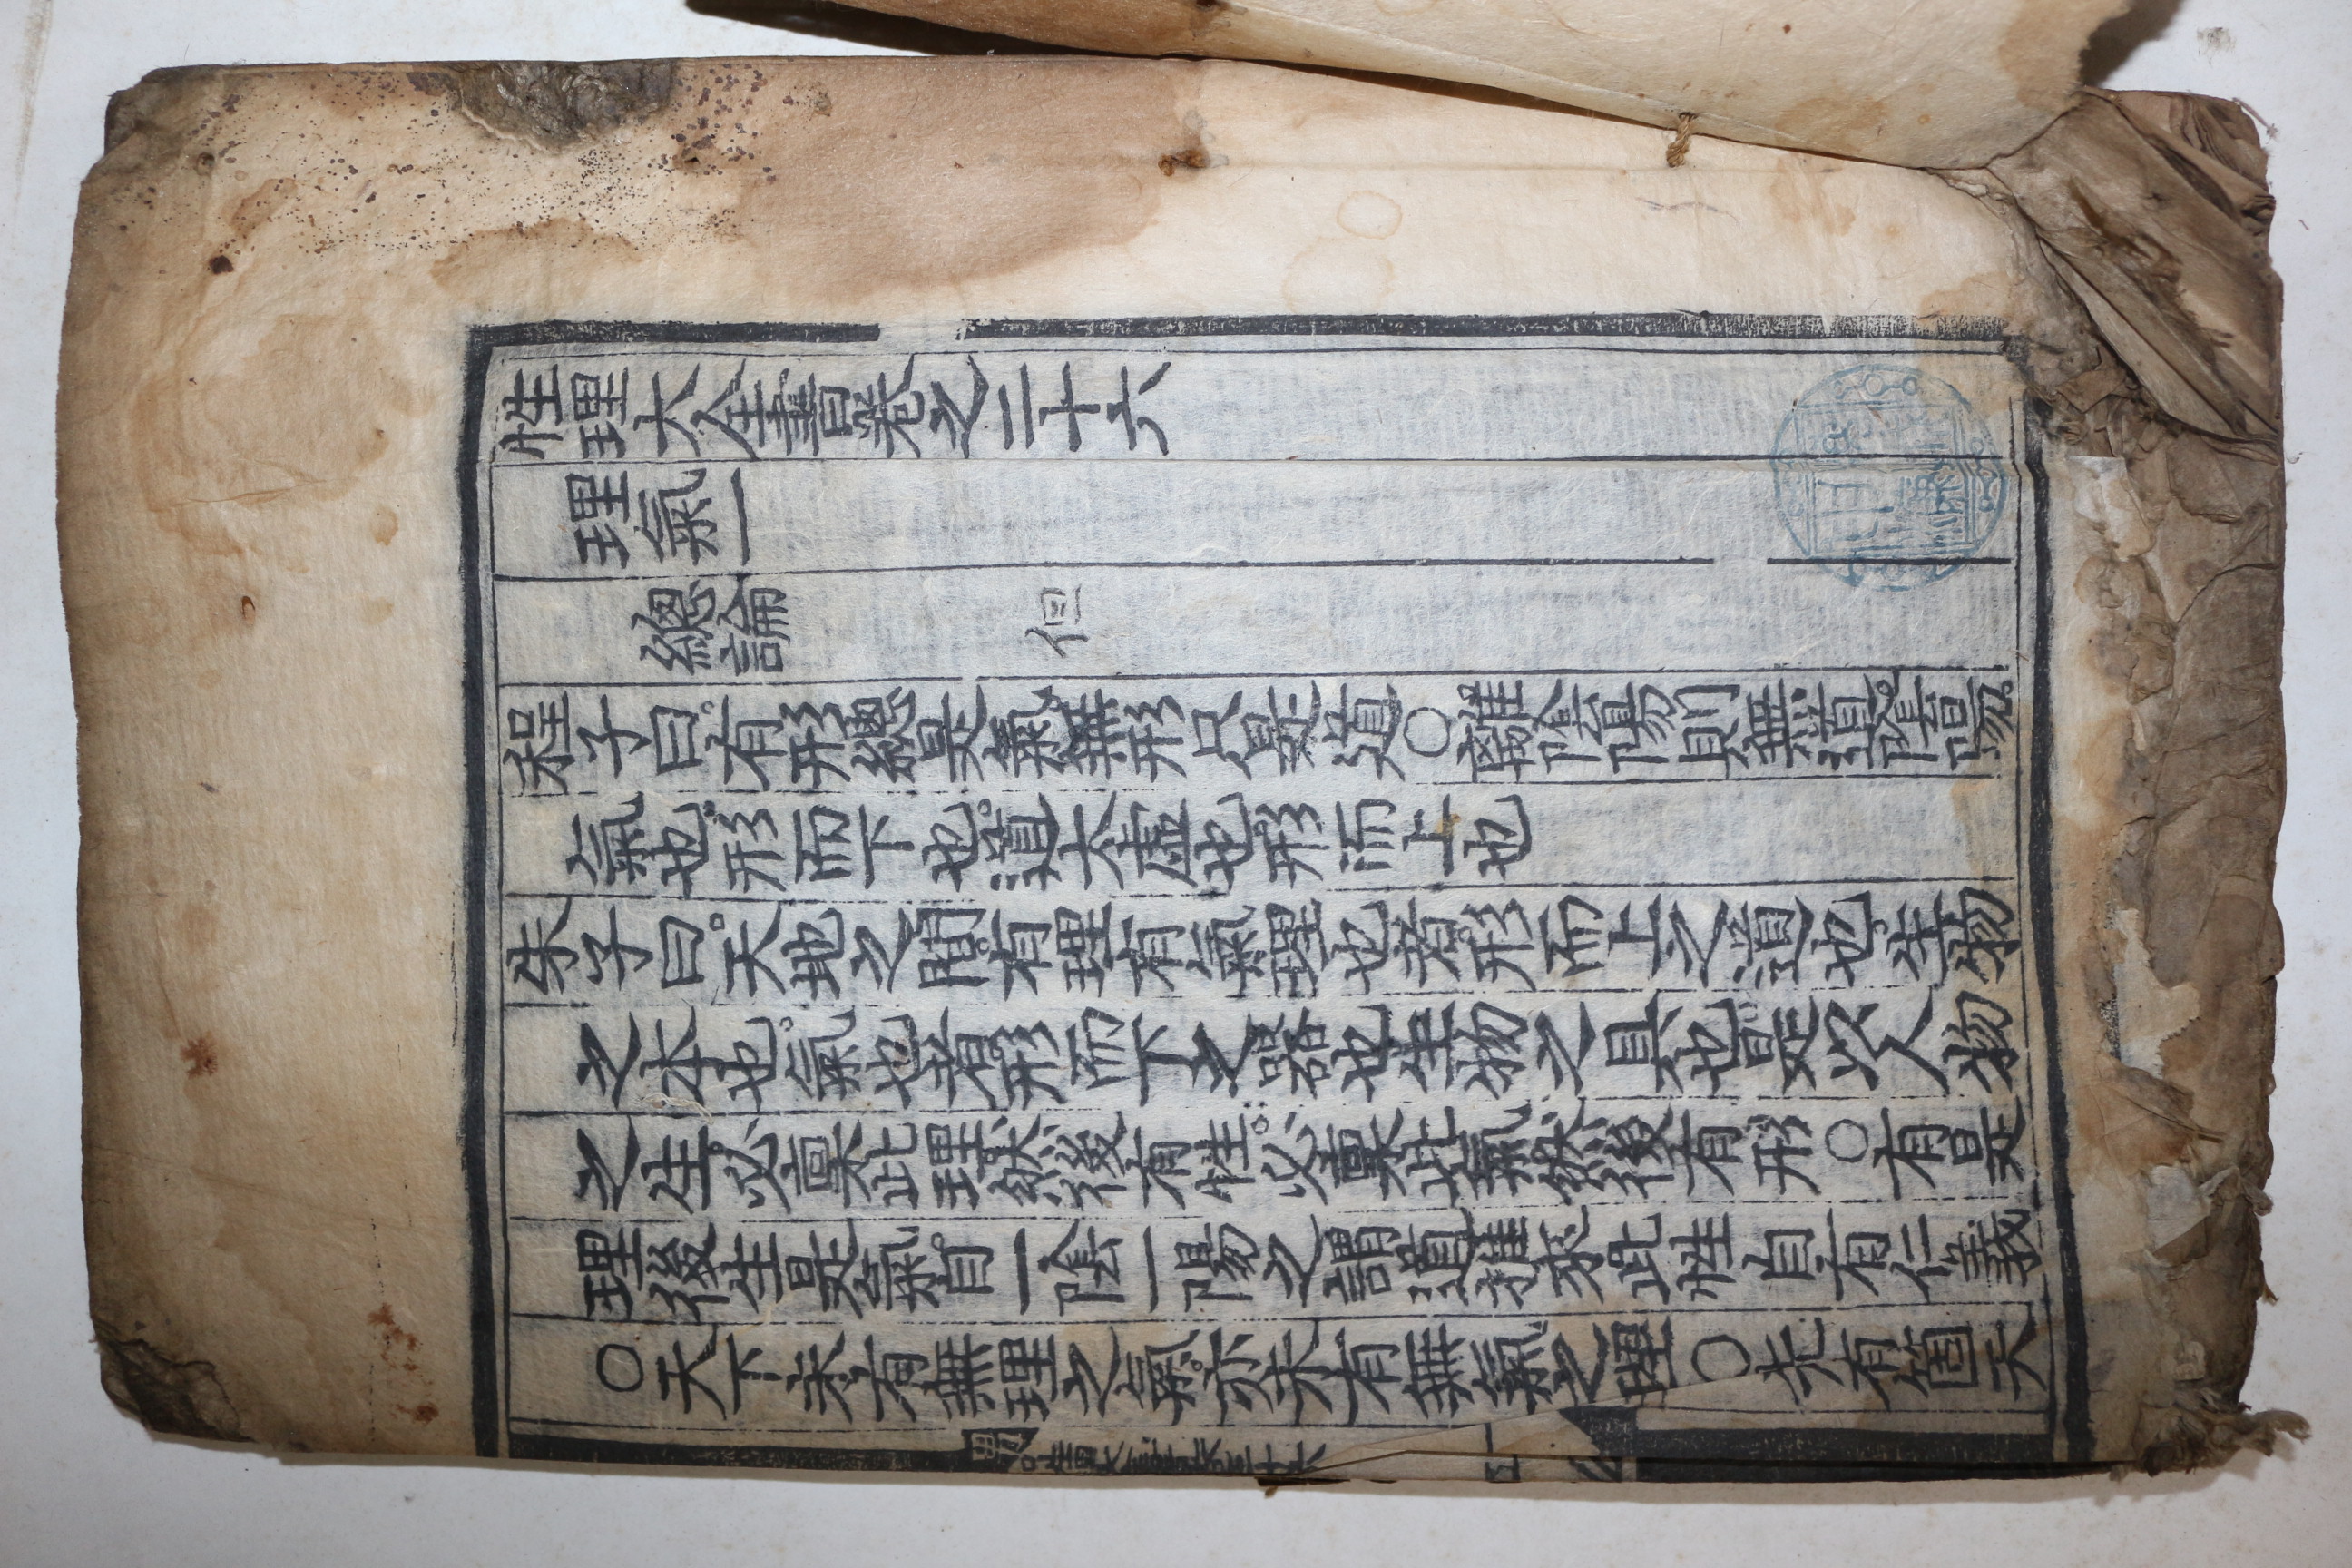 性理大全書卷之二十六
理氣一
總論
但
程子曰有形總是氣無形只是道○離陰陽則無道陰陽
氣也形而下也道太虛也形而上也
朱子曰天地之間有理有氣理也者形而上之道也生物
之本也氣也者形而下之器也生物之具也是以人物
之生必稟此理然後有性必稟此氣然後有形○有是
理後生是氣自一陰一陽之謂道推來此性自有仁義
○天下未有無理之氣亦未有無氣之理○先有箇天